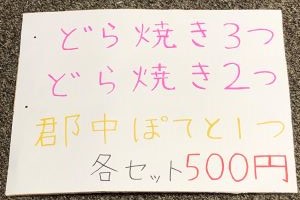 ・どら焼き3つ
・どら焼き2つ
郡中ぽてと1つ
各セット500円